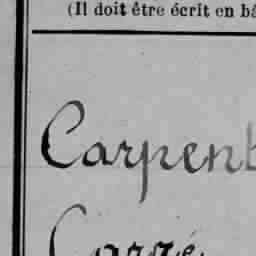 (Il doit être écrit en bâ
Carpent
Carré